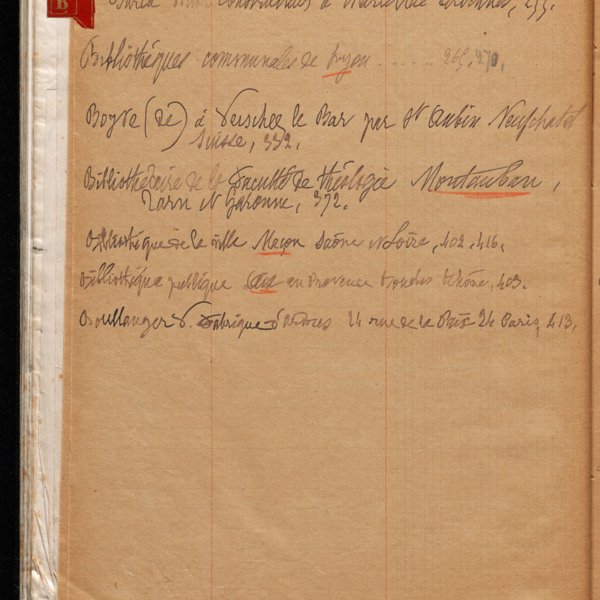 B
constructeurs à
Bibliothéques communales de Lyon ...... 269, 270,
Boyve (de) à Verschez le Bar par St Aubin Neufchatel
Suisse, 332.
Bibliothécaire de la Faculté de théologie Montauban,
Tarn et Garonne, 372.
Bibliothéque de la ville Macon Saône et Loire, 402, 416,
Bibliothéque publique Aix en Provence Bouches Rhône, 403.
Boullanger V. Fabrique 24 rue de la Paix 24 Paris, 413,